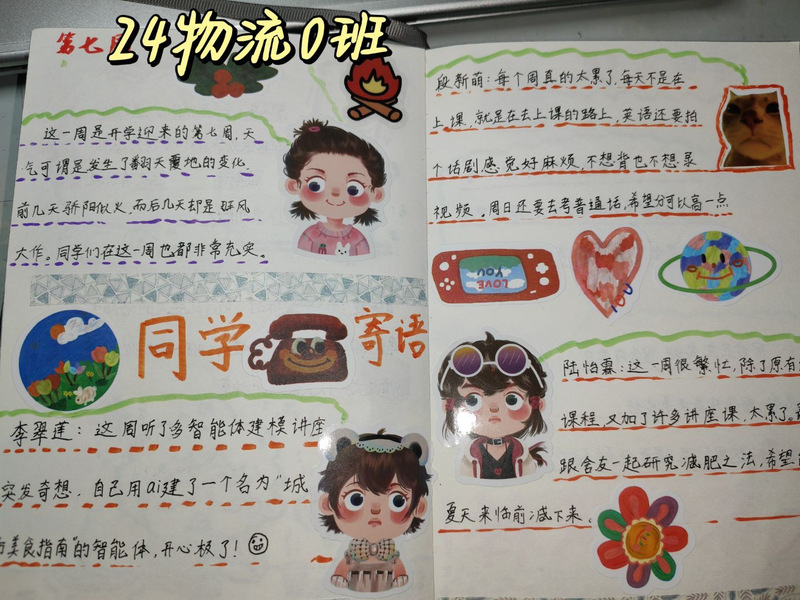 第七
24物流0班
这一周是开学迎来的第七周,天
气可谓是发生了翻天覆地的变化,
前几天骄阳似火,而后几天却是狂风
大作。同学们在这一周也都非常充实。
同学寄语
李翠莲:这周听了多智能体建模讲座
突发奇想,自己用ai建了一个名为“城
市美食指南”的智能体,开心极了!
段新萌:每个周真的太累了,每天不是在
上课,就是在去上课的路上,英语还要拍
个话剧感觉好麻烦,不想背也不想录
视频,周日还要去考普通话,希望分可以高一点
LOVE
YOU
陆怡霖:这一周很繁忙,除了原有
课程,又加了许多讲座课,太累了,
跟舍友一起研究减肥之法,希望
夏天来临前减下来.